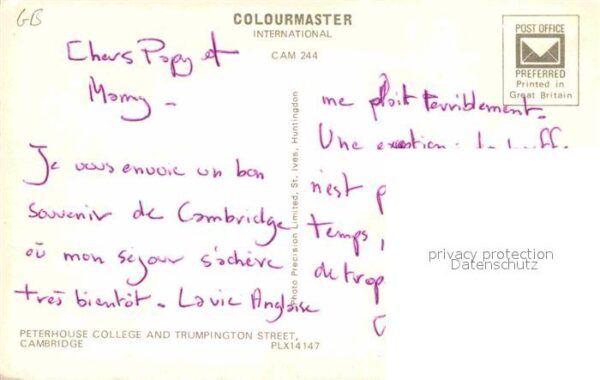 GB
COLOURMASTER
INTERNATIONAL
CAM 244
POST OFFICE
PREFERRED
Printed in
Great Britain
Chers Papy et
Mamy -
Je vous envoie un bon
souvenir de Cambridge
où mon séjour s'achève
très bientôt. La vie Anglaise
Photo Precision Limited, St. Ives, Huntingdon
me plaît terriblement.
Une exception :
n'est
temps,
de trop
privacy protection
Datenschutz
PETERHOUSE COLLEGE AND TRUMPINGTON STREET,
CAMBRIDGE
PLX14147